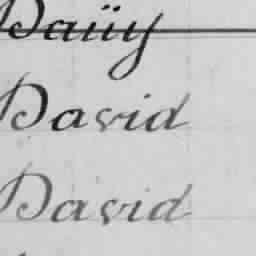 Daüy
David
David